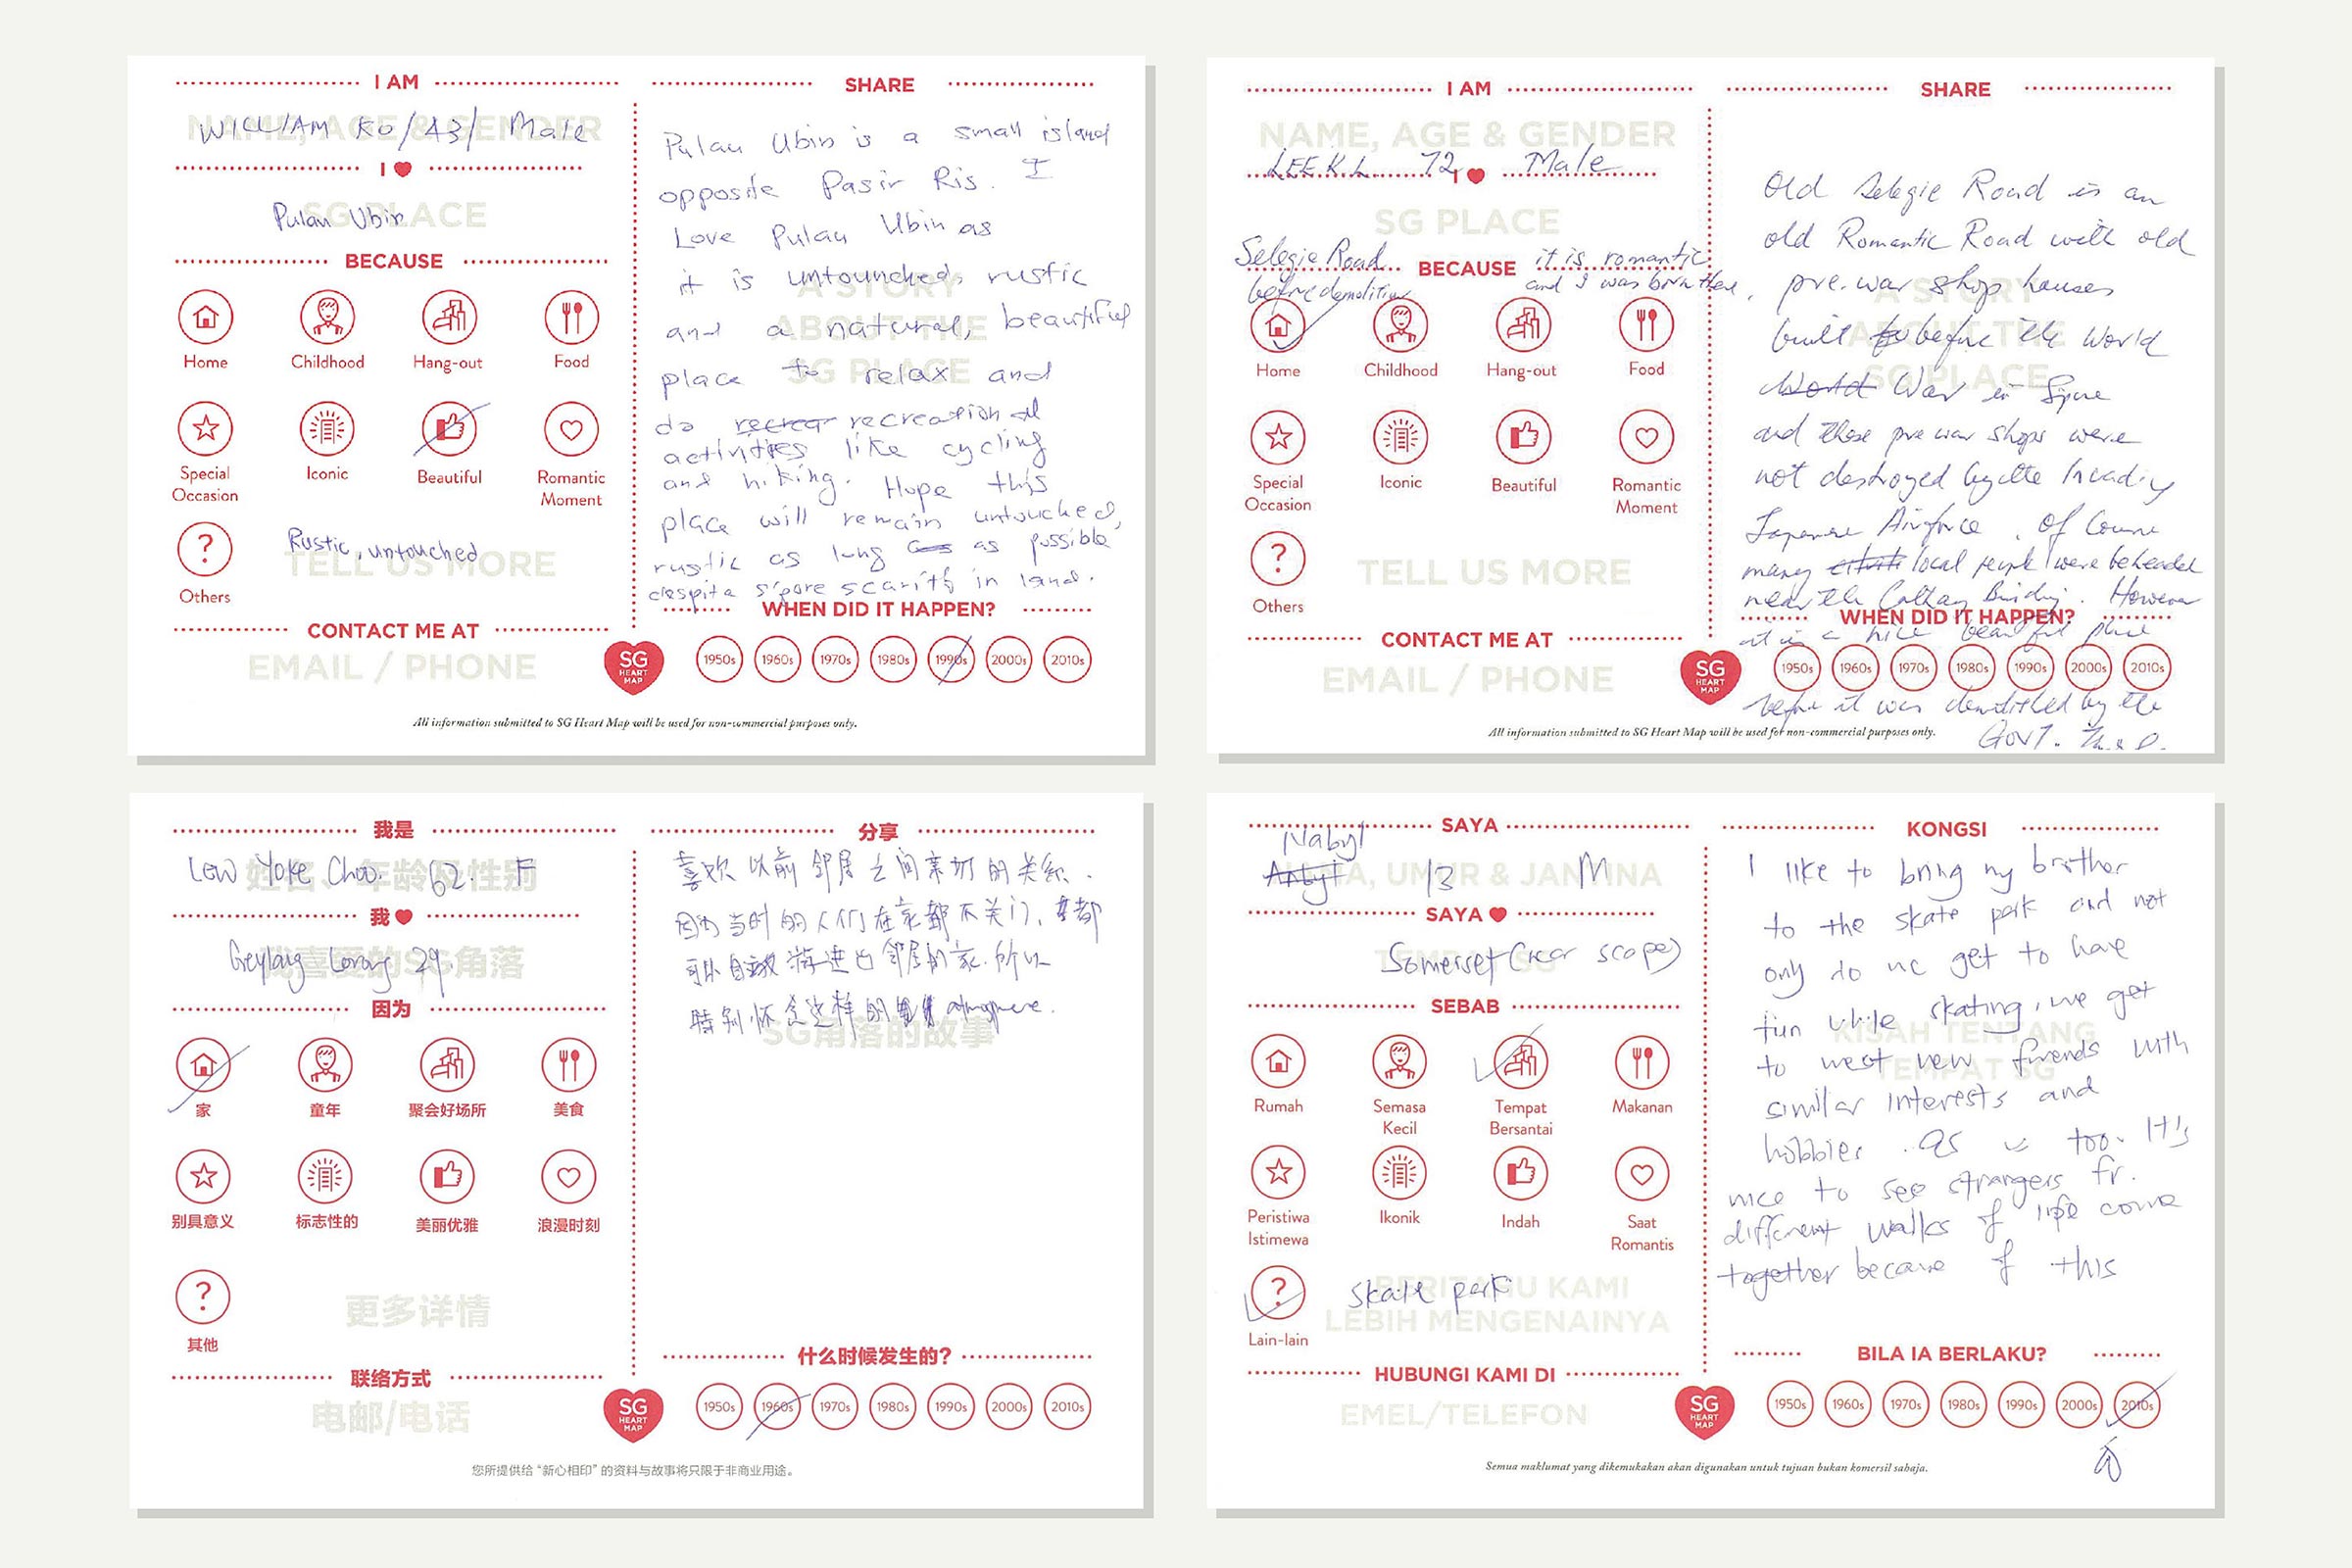 I AM
NAME, AGE & GENDER
WILLIAM KO / 43 / Male
I ♥
SG PLACE
Pulau Ubin
BECAUSE
Home
Childhood
Hang-out
Food
Special Occasion
Iconic
Beautiful
Romantic Moment
Others
TELL US MORE
Rustic, untouched
CONTACT ME AT
EMAIL / PHONE
SHARE
A STORY
ABOUT THE
SG PLACE
Pulau Ubin is a small island
opposite Pasir Ris. I
Love Pulau Ubin as
it is untounched, rustic
and a natural, beautiful
place to relax and
do recrear recreational
activities like cycling
and hiking. Hope this
place will remain untouched,
rustic as long as as possible
despite s'pore scarity in land.
WHEN DID IT HAPPEN?
SG
HEART
MAP
1950s 1960s 1970s 1980s 1990s 2000s 2010s
All information submitted to SG Heart Map will be used for non-commercial purposes only.
I AM
NAME, AGE & GENDER
LEE K.L. 72 Male
I ♥
SG PLACE
Selegie Road
before demolition
BECAUSE
it is romantic
and I was born there.
Home
Childhood
Hang-out
Food
Special Occasion
Iconic
Beautiful
Romantic Moment
Others
TELL US MORE
CONTACT ME AT
EMAIL / PHONE
SHARE
A STORY
ABOUT THE
SG PLACE
Old Selegie Road is an
old Romantic Road with old
pre-war shop houses
built before the World
World War in S'pore
and those pre war shops were
not destroyed by the Invading
Japanese Airforce. Of Course
many local people were beheaded
near the Cathay Building. However
it is a nice beautiful place
before it was demolished by the
GOVT.
WHEN DID IT HAPPEN?
SG
HEART
MAP
1950s 1960s 1970s 1980s 1990s 2000s 2010s
All information submitted to SG Heart Map will be used for non-commercial purposes only.
我是
姓名、年龄及性别
Low Yoke Choo. 62. F
我 ♥
我喜爱的SG角落
Geylang Lorong 29.
因为
家
童年
聚会好场所
美食
别具意义
标志性的
美丽优雅
浪漫时刻
其他
更多详情
联络方式
电邮/电话
分享
SG角落的故事
喜欢以前邻居之间亲切的关系.
因为当时的人们在家都不关门,
可以自由 进出邻居的家.所以
特别怀念这样的 atmosphere.
什么时候发生的?
SG
HEART
MAP
1950s 1960s 1970s 1980s 1990s 2000s 2010s
您所提供给“新心相印”的资料与故事将只限于非商业用途。
SAYA
NAMA, UMUR & JANTINA
Nabyl 13 M
SAYA ♥
TEMPAT SG
Somerset (near scape)
SEBAB
Rumah
Semasa Kecil
Tempat Bersantai
Makanan
Peristiwa Istimewa
Ikonik
Indah
Saat Romantis
Lain-lain
BERITAHU KAMI
LEBIH MENGENAINYA
Skate park
HUBUNGI KAMI DI
EMEL/TELEFON
KONGSI
KISAH TENTANG
TEMPAT SG
I like to bring my brother
to the skate park and not
only do we get to have
fun while skating, we get
to meet new friends with
similar interests and
hobbies as us too. It's
nice to see strangers fr.
different walks of life come
together because of this
BILA IA BERLAKU?
SG
HEART
MAP
1950s 1960s 1970s 1980s 1990s 2000s 2010s
Semua maklumat yang dikemukakan akan digunakan untuk tujuan bukan komersil sahaja.